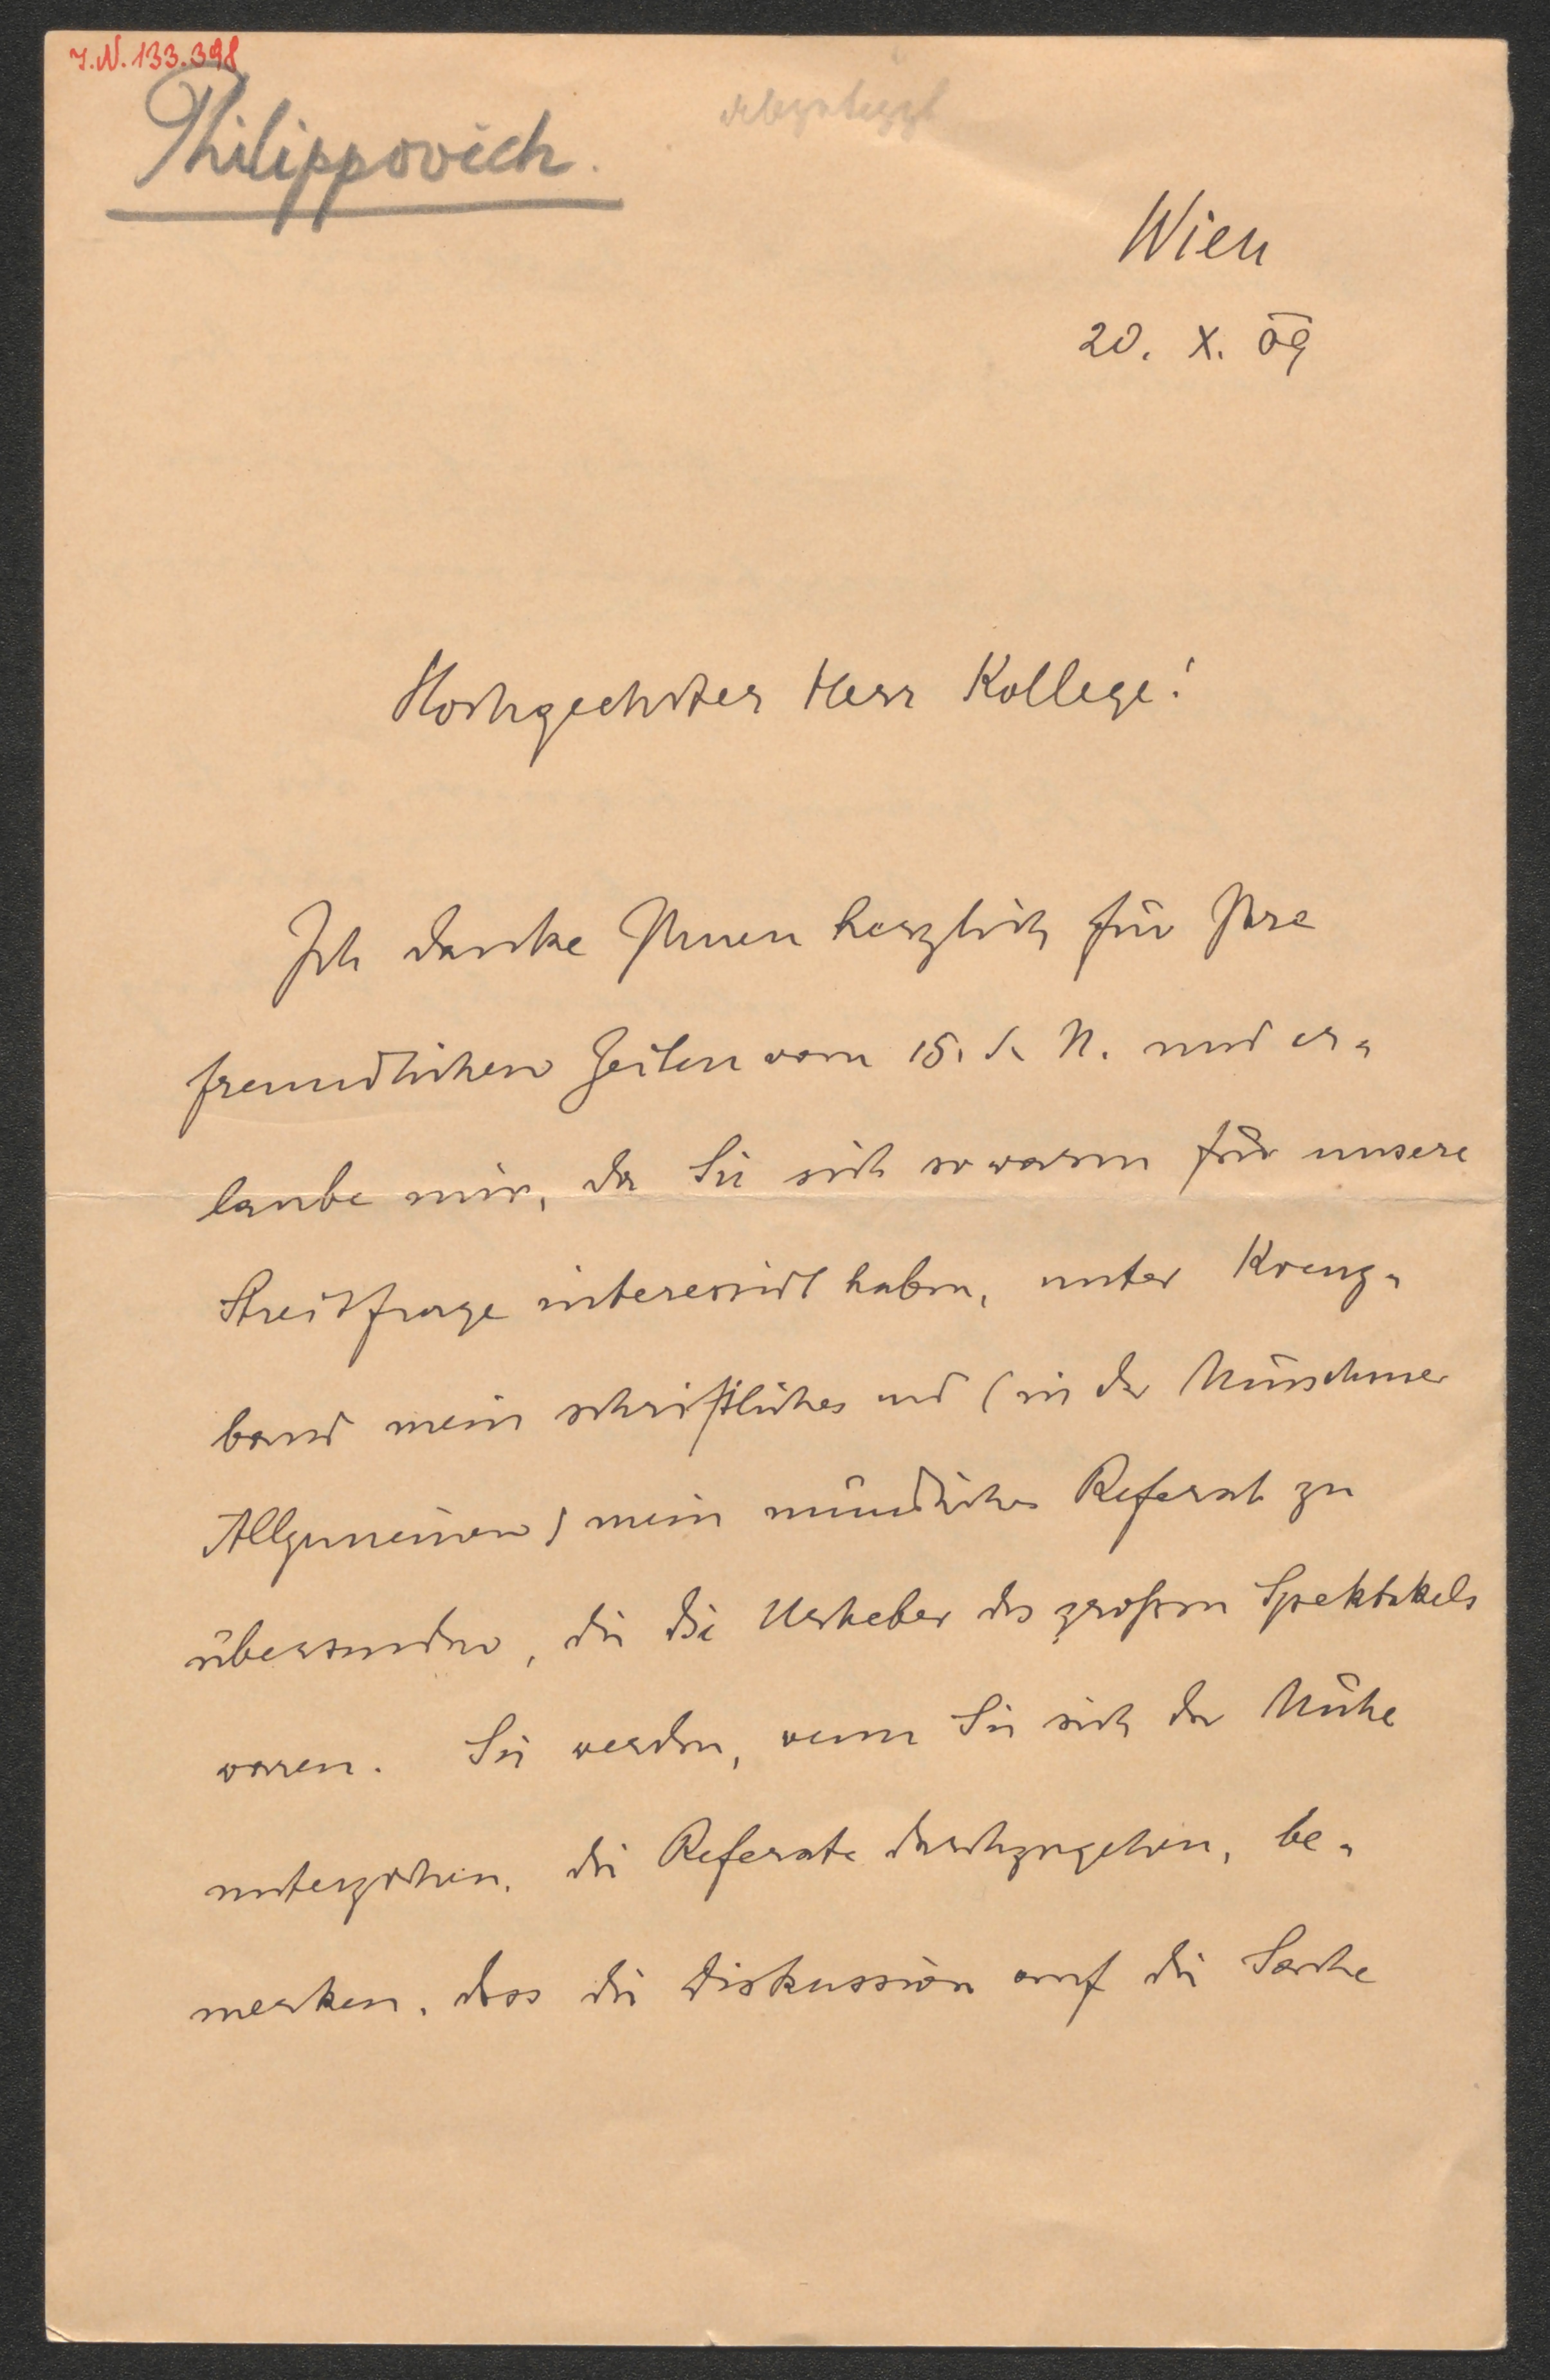 I.N. 133.398
Philippovich.
Wien
20. X. 09
Hochgeehrter Herr Kollege!
Ich danke Ihnen herzlich für Ihre
freundlichen Zeilen vom 15. d. M. und er-
laube mir, da Sie sich so warm für unsere
Streitfrage interessirt haben, unter Kreuz-
band mein schriftliches und (in der Münchner
Allgemeinen) mein mündliches Referat zu
übersenden, die die Urheber des großen Spektakels
waren. Sie werden, wenn Sie sich der Mühe
unterziehen, die Referate durchzugehen, be-
merken, dass die Diskussion auf die Sache